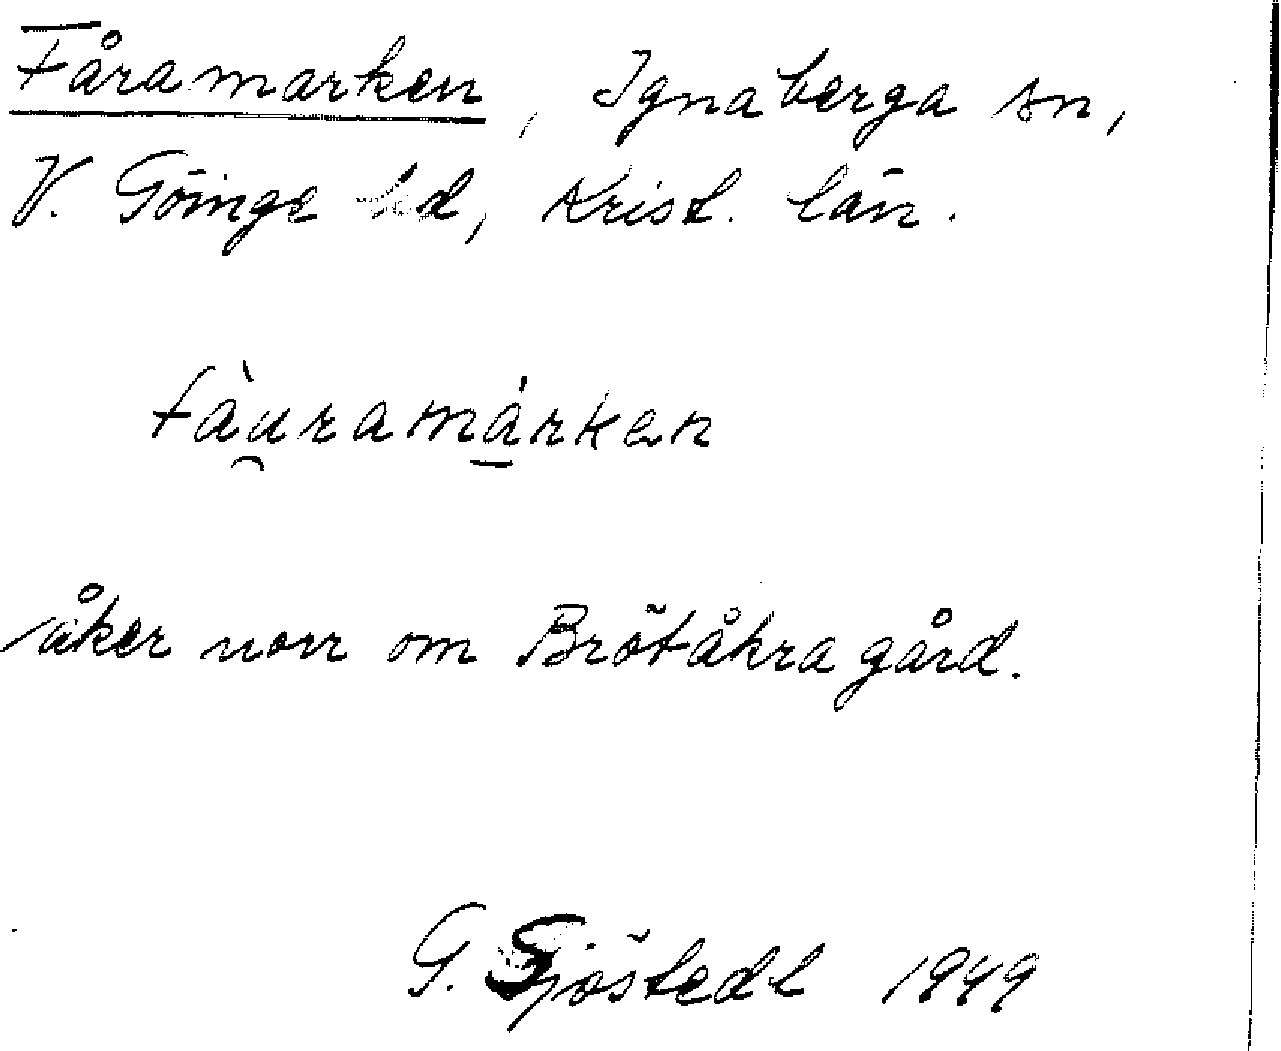 Fåramarken, Ignaberga sn,
V. Göinge hd, Krist. län.
fàu̯ramá̱rken
åker norr om Brötåkra gård.
G. Sjöstedt 1949